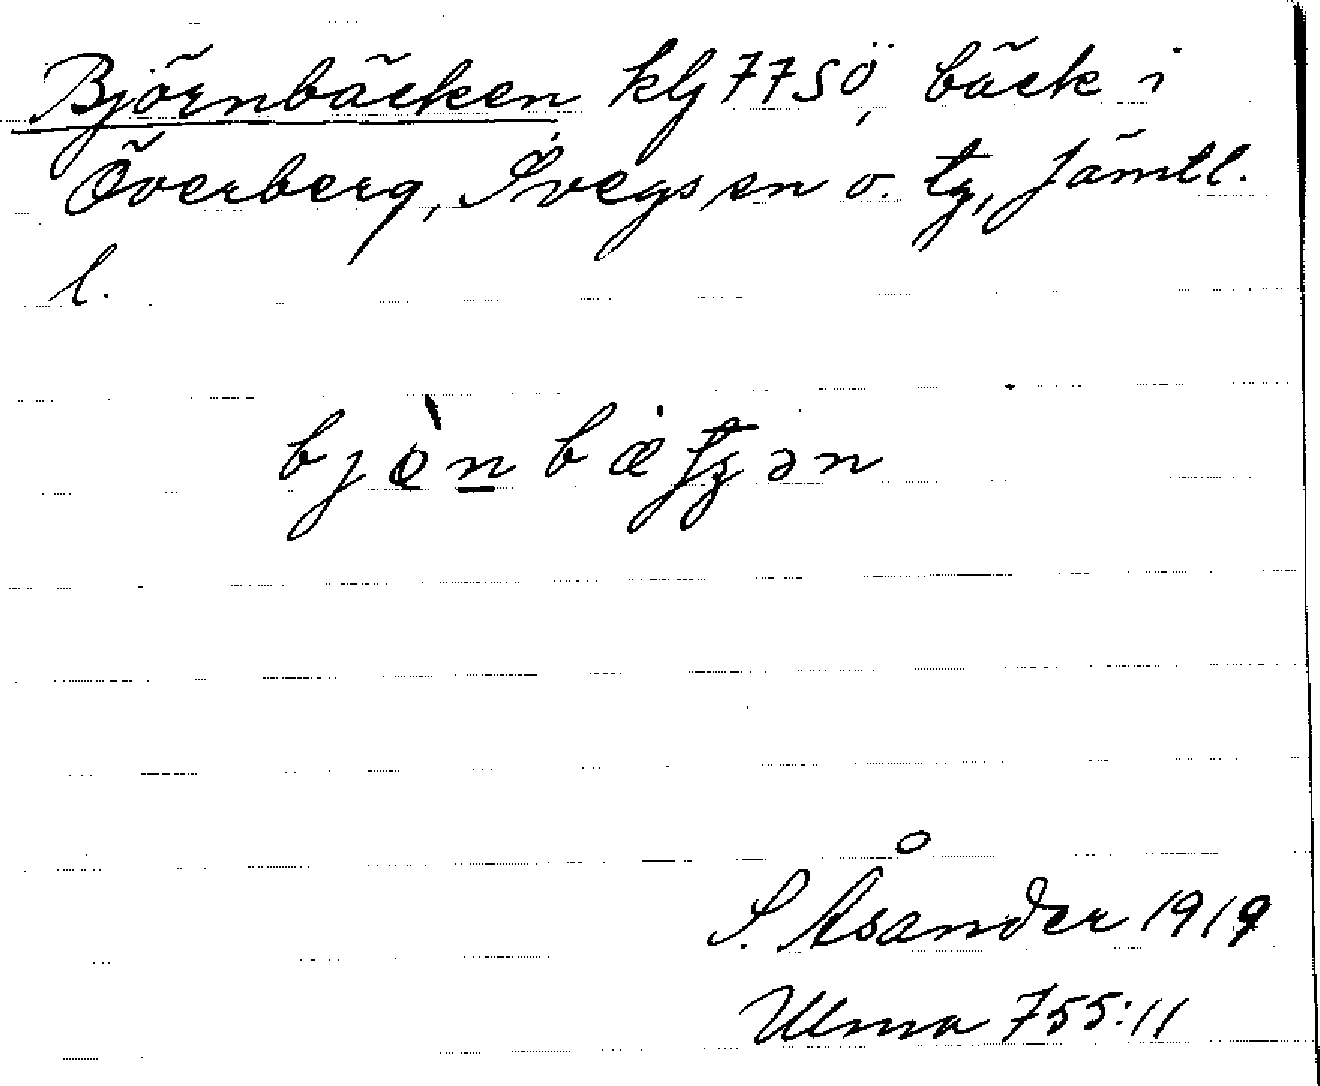 Björnbäcken klj 77 SÖ, bäck i
Överberg, Svegs sn o. tg, Jämtl.
l.
bjönbætʒən
S. Åsander 1919
Ulma 755:11